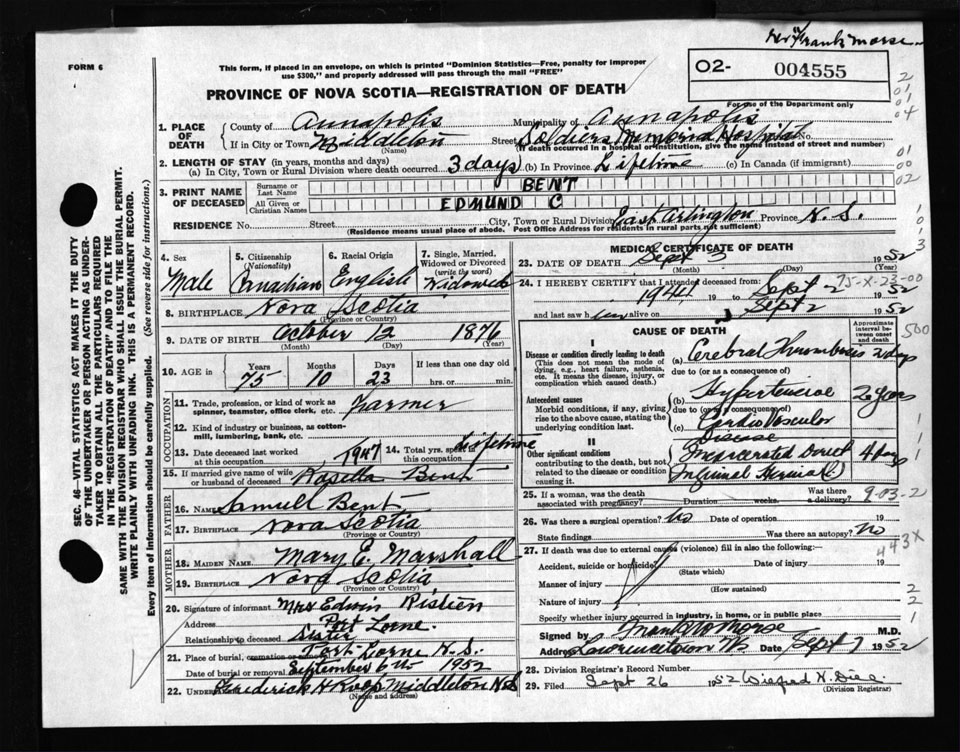 Dr. Frank Morse
FORM 6
This form, if placed in an envelope, on which is printed "Dominion Statistics—Free, penalty for improper
use $300," and properly addressed will pass through the mail "FREE"
O2- 004555
For use of the Department only
PROVINCE OF NOVA SCOTIA—REGISTRATION OF DEATH
1. PLACE OF DEATH
County of Annapolis Municipality of Annapolis
If in City or Town Middleton Street Soldiers Memorial Hospital
(Name) (If death occurred in a hospital or institution, give the name instead of street and number)
2. LENGTH OF STAY (in years, months and days)
(a) In City, Town or Rural Division where death occurred 3 days (b) In Province Lifetime (c) In Canada (if immigrant)
3. PRINT NAME OF DECEASED
Surname or Last Name BENT
All Given or Christian Names EDMUND C
RESIDENCE No. Street City, Town or Rural Division East Arlington Province N.S.
(Residence means usual place of abode. Post Office Address for residents in rural parts not sufficient)
4. Sex Male
5. Citizenship (Nationality) Canadian
6. Racial Origin English
7. Single, Married, Widowed or Divorced (write the word) Widowed
8. BIRTHPLACE Nova Scotia
(Province or Country)
9. DATE OF BIRTH October 12 1876
(Month) (Day) (Year)
10. AGE in Years 75 Months 10 Days 23 If less than one day hrs. or min.
OCCUPATION
11. Trade, profession, or kind of work as spinner, teamster, office clerk, etc. Farmer
12. Kind of industry or business, as cotton-mill, lumbering, bank, etc.
13. Date deceased last worked at this occupation 1947
14. Total yrs. spent in this occupation Lifetime
15. If married give name of wife or husband of deceased Rosella Bent
FATHER
16. Name Samuel Bent
17. BIRTHPLACE Nova Scotia
(Province or Country)
MOTHER
18. MAIDEN NAME Mary E. Marshall
19. BIRTHPLACE Nova Scotia
(Province or Country)
20. Signature of informant Mrs Edwin Risteen
Address Port Lorne.
Relationship to deceased Sister
21. Place of burial, cremation or removal Port Lorne N.S.
Date of burial or removal September 6th 1952
22. Undertaker Frederick Middleton N.S
MEDICAL CERTIFICATE OF DEATH
23. DATE OF DEATH Sept 3 1952
(Month) (Day) (Year)
24. I HEREBY CERTIFY that I attended deceased from:
1944 19 to Sept 2 1952
and last saw h im alive on Sept 2 1952
75-X-23-00
CAUSE OF DEATH
Approximate interval between onset and death
I
Disease or condition directly leading to death
(This does not mean the mode of dying, e.g., heart failure, asthenia, etc. It means the disease, injury, or complication which caused death.)
(a) Cerebral Thrombosis 2 days
due to (or as a consequence of)
Antecedent causes
Morbid conditions, if any, giving rise to the above cause, stating the underlying condition last.
(b) Hypertensive 20 years
due to (or as a consequence of)
(c) Cardio Vascular
Disease
II
Other significant conditions
contributing to the death, but not related to the disease or condition causing it.
Incarcerated Direct 4 days
Inguinal Hernia
25. If a woman, was the death associated with pregnancy? Duration weeks. Was there a delivery?
9-03-2
26. Was there a surgical operation? No Date of operation 19
State findings Was there an autopsy? No
443X
27. If death was due to external causes (violence) fill in also the following:—
Accident, suicide or homicide? Date of injury 19
(State which)
Manner of injury
(How sustained)
Nature of injury
Specify whether injury occurred in industry, in home, or in public place
Signed by Frank M. Morse M.D.
Address Lawrencetown NS Date Sept 7 1952
28. Division Registrar's Record Number
29. Filed Sept 26 1952
(Division Registrar)
SEC. 46—VITAL STATISTICS ACT MAKES IT THE DUTY
OF THE UNDERTAKER OR PERSON ACTING AS UNDERTAKER TO OBTAIN ALL THE PARTICULARS REQUIRED
IN THE "REGISTRATION OF DEATH" AND TO FILE THE
SAME WITH THE DIVISION REGISTRAR WHO SHALL ISSUE THE BURIAL PERMIT.
WRITE PLAINLY WITH UNFADING INK. THIS IS A PERMANENT RECORD.
Every item of Information should be carefully supplied. (See reverse side for instructions.)